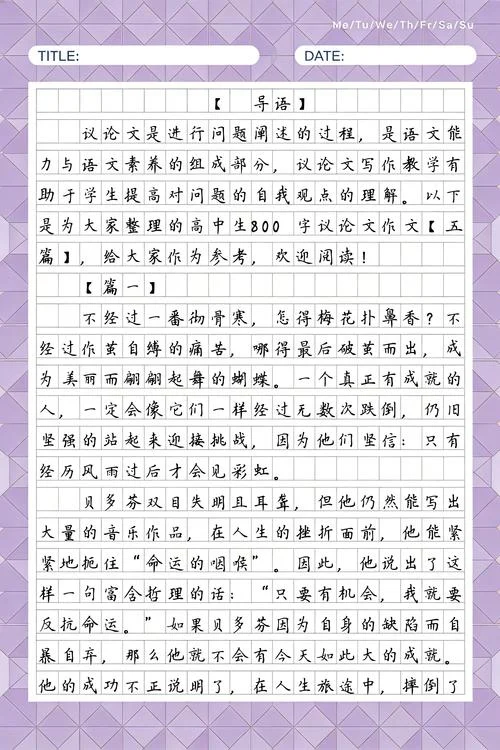 Me/Tu/We/Th/Fr/Sa/Su
TITLE: DATE:
【 导语】
议论文是进行问题阐述的过程，是语文能
力与语文素养的组成部分，议论文写作教学有
助于学生提高对问题的自我观点的理解。以下
是为大家整理的高中生800 字议论文作文【 五
篇】，给大家作为参考，欢迎阅读！
【 篇一】
不经过一番彻骨寒，怎得梅花扑鼻香？不
经过作茧自缚的痛苦，哪得最后破茧而出，成
为美丽而翩翩起舞的蝴蝶。一个真正有成就的
人，一定会像它们一样经过无数次跌倒，仍旧
坚强的站起来迎接挑战，因为他们坚信：只有
经历风雨过后才会见彩虹。
贝多芬双目失明且耳聋，但他仍然能写出
大量的音乐作品，在人生的挫折面前，他能紧
紧地扼住“命运的咽喉”。因此，他说出了这
样一句富含哲理的话：“只要有机会，我就要
反抗命运。”如果贝多芬因为自身的缺陷而自
暴自弃，那么他就不会有今天如此大的成就。
他的成功不正说明了，在人生旅途中，摔倒了